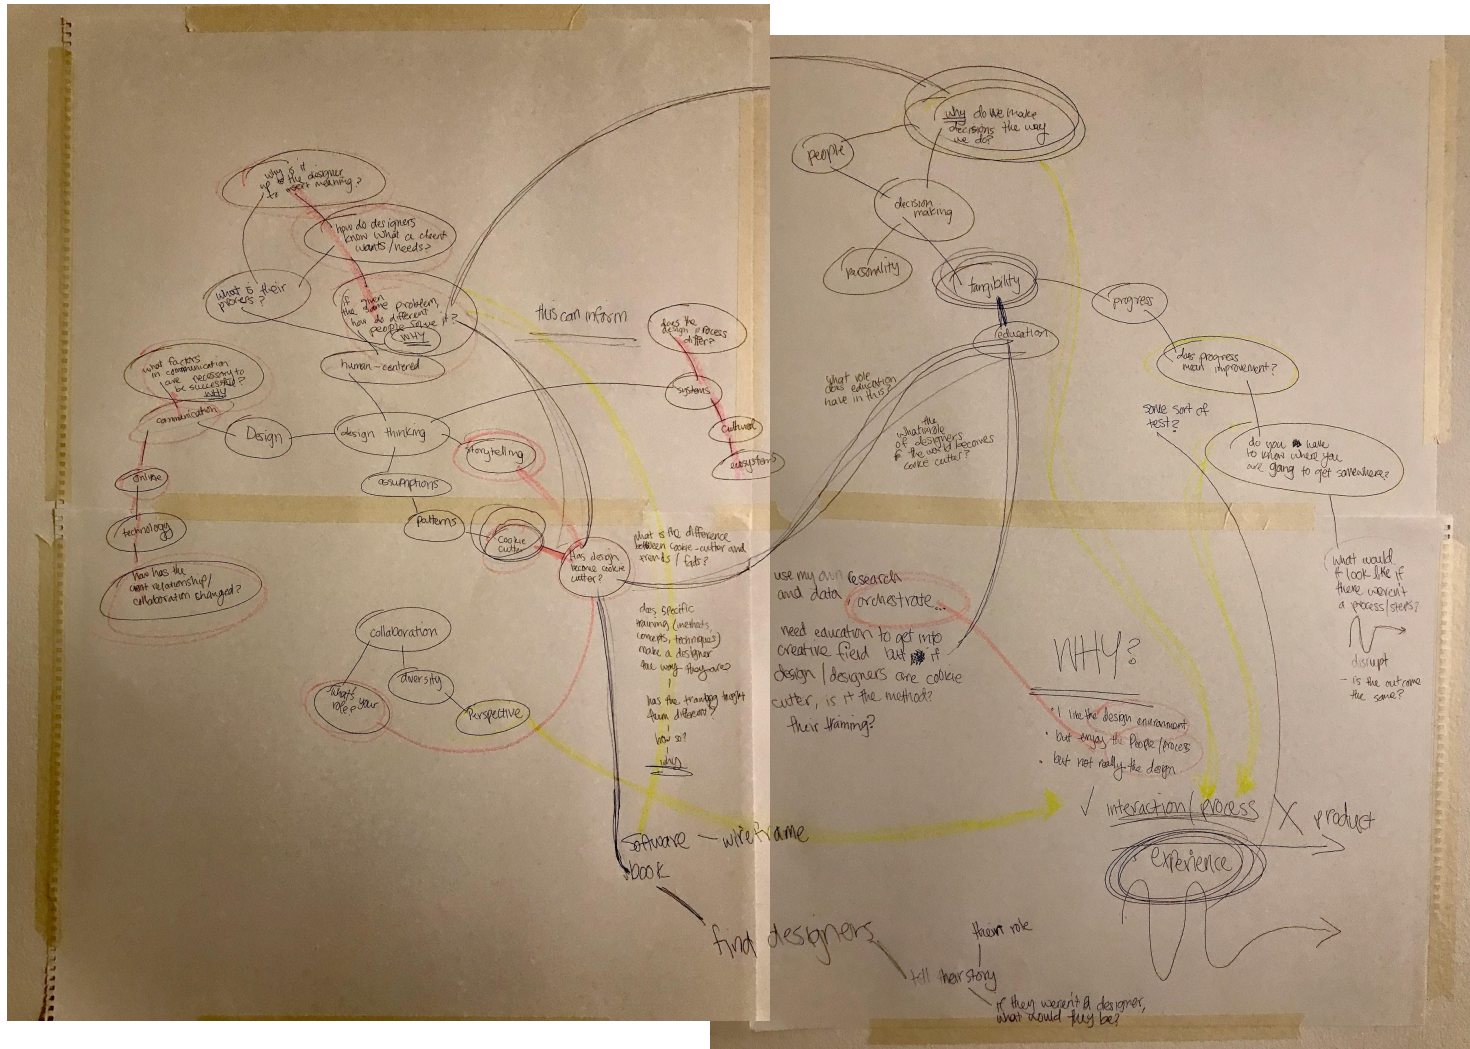 why is it
up to the designer
to insert meaning?
how do designers
know what a client
wants/needs?
what is their
process?
if given
the same problem,
how do different
people solve it?
WHY
human-centered
this can inform
does the
design process
differ?
systems
cultural
ecosystems
what factors
in communication
are necessary to
be successful?
WHY
communication
Design
design thinking
storytelling
online
assumptions
technology
patterns
cookie
cutter
has design
become cookie
cutter?
how has the
relationship/
collaboration changed?
what is the difference
between cookie-cutter and
trends/fads?
does specific
training (methods,
concepts, techniques)
make a designer
the way they are?
has the training taught
them different?
how so?
why
collaboration
diversity
what's your
role?
Perspective
software — wireframe
book
find designers
tell their story
their role
if they weren't a designer,
what would they be?
why do we make
decisions the way
we do?
people
decision
making
personality
tangibility
education
progress
does progress
mean improvement?
some sort of
test?
do you have
to know where you
are going to get somewhere?
what role
does education
have in this?
the
what role
of designers
if the world becomes
cookie cutter?
what would
it look like if
there weren't
a process/steps?
disrupt
- is the outcome
the same?
use my own research
and data
orchestrate...
need education to get into
creative field but if
design/designers are cookie
cutter, is it the method?
their training?
WHY?
• I like the design environment
• but enjoy the people/process
• but not really the design
✓ interaction/process
X product
experience